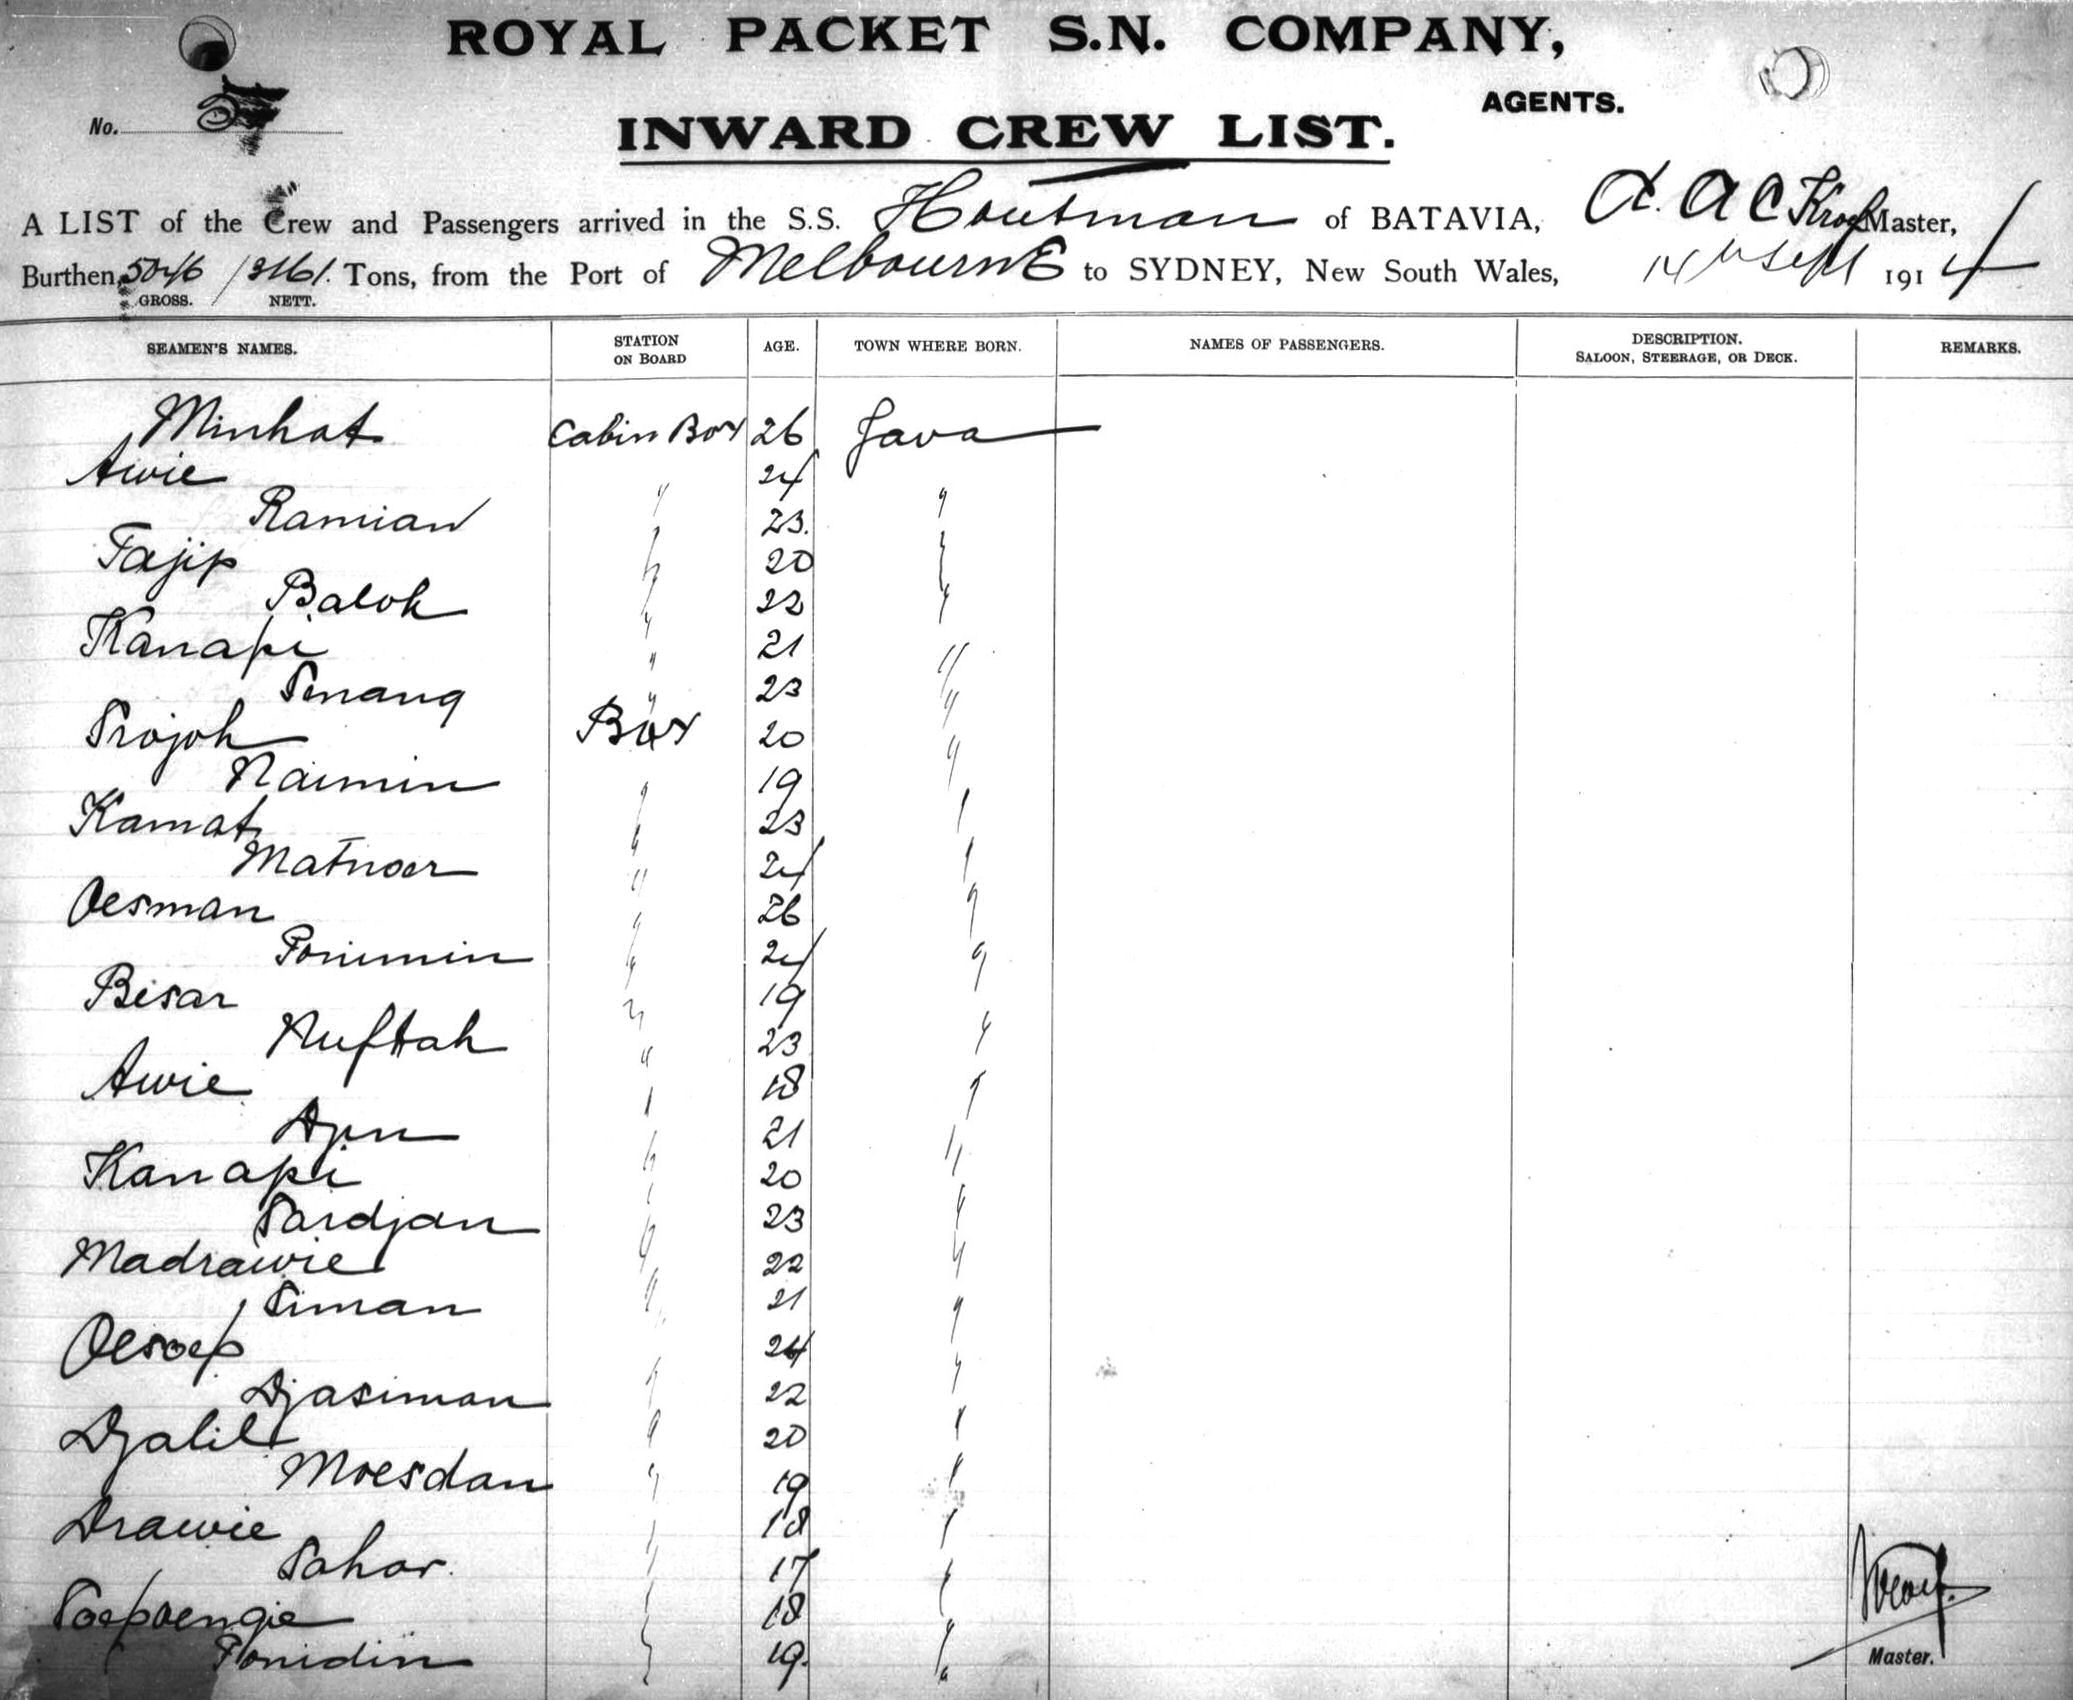 ROYAL PACKET S.N. COMPANY,
AGENTS.
No.
INWARD CREW LIST.
A LIST of the Crew and Passengers arrived in the S.S. Houtman of BATAVIA, A C Master,
Burthen, 5046 / 3161. Tons, from the Port of Melbourne to SYDNEY, New South Wales, 14th Sept 1914
GROSS. NETT.
SEAMEN'S NAMES. STATION ON BOARD AGE. TOWN WHERE BORN. NAMES OF PASSENGERS. DESCRIPTION. SALOON, STEERAGE, OR DECK. REMARKS.
Minhat Cabin Boy 26 Java
Awie " 24 "
Ramian " 23. "
Tajip " 20 "
Balok " 22 "
Kanapi " 21 "
Senang " 23 "
Srojoh Boy 20 "
Naimin " 19 "
Kamat " 23 "
Matnoer " 24 "
Oesman " 26 "
Ponimin " 24 "
Bisar " 19 "
Muftah " 23 "
Awie " 18 "
" 21 "
Kanapi " 20 "
Sardjan " 23 "
Madrawie " 22 "
Siman " 21 "
Oesoep " 24 "
Djasiman " 22 "
Djalil " 20 "
Moesdan " 19 "
Drawie " 18 "
Sahar. " 17 "
Soepoengie " 18 "
Ponidin " 19. "
Master.